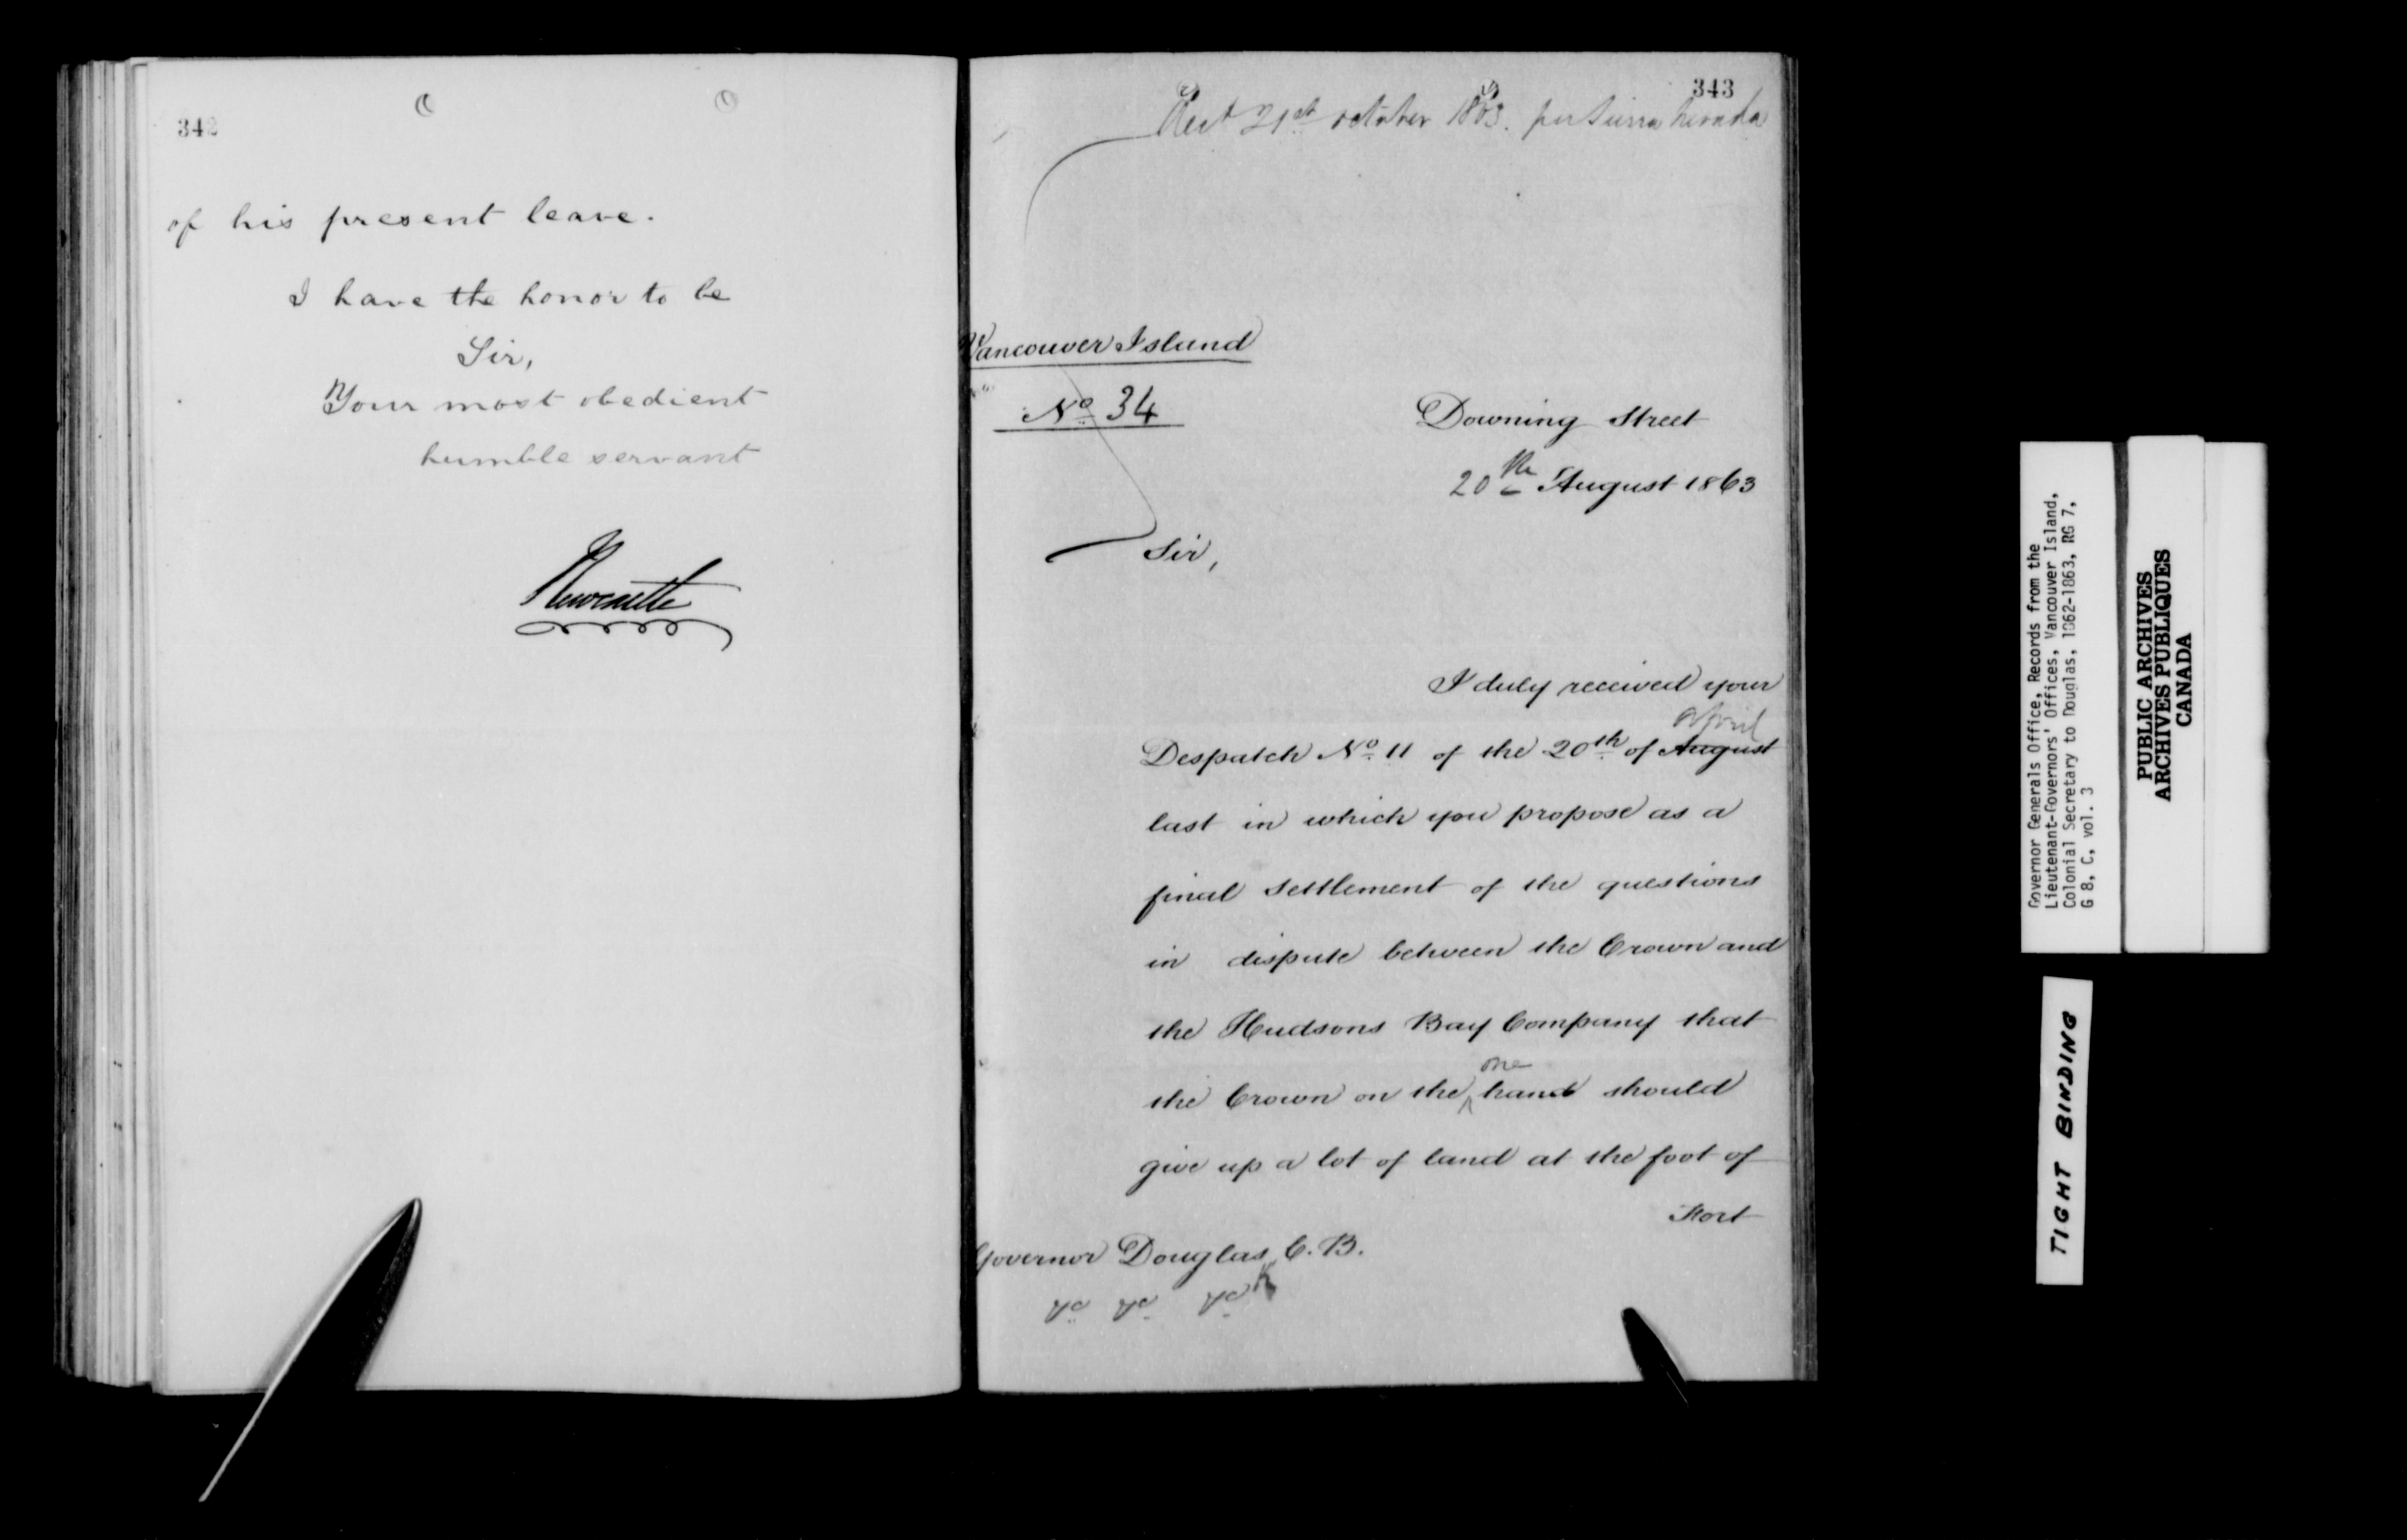 342
of his present leave.
I have the honor to be
Sir,
Your most obedient
humble servant
Newcastle
343
Rect 21st October 1863. per Sierra Nevada
Vancouver Island
No 34
Downing Street
20th August 1863
Sir,
I duly received your
April
Despatch No 11 of the 20th of August
last in which you propose as a
final settlement of the questions
in dispute between the Crown and
the Hudsons Bay Company that
one
the Crown on the ^ hand should
give up a lot of land at the foot of
Fort
Governor Douglas C.B.
Governor Generals Office, Records from the
Lieutenant-Governors' Offices, Vancouver Island,
Colonial Secretary to Douglas, 1862-1863, RG 7,
G 8, C, vol. 3
PUBLIC ARCHIVES
ARCHIVES PUBLIQUES
CANADA
TIGHT BINDING